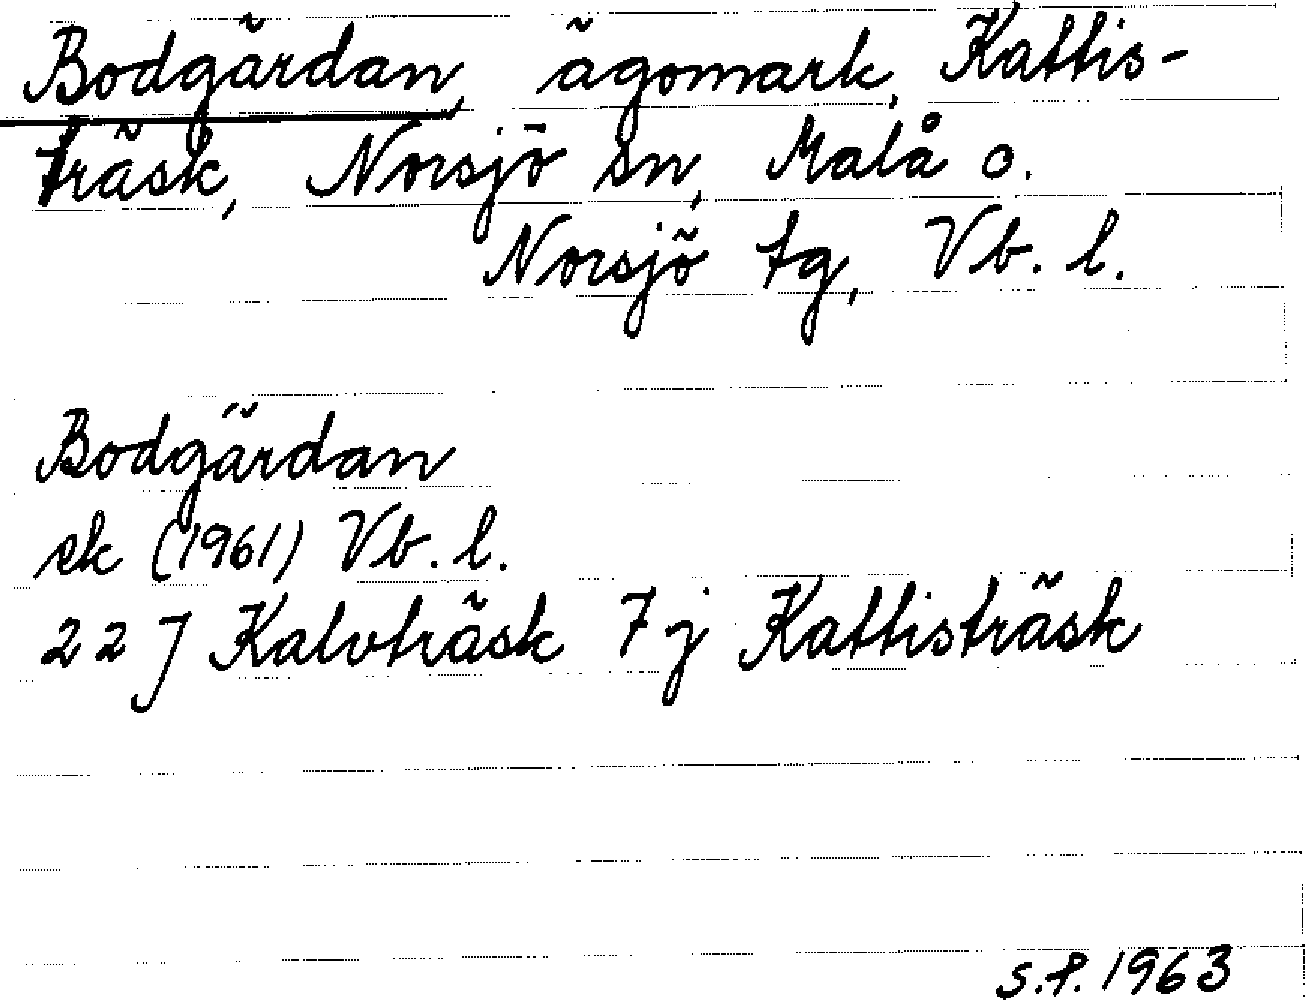 Bodgärdan, ägomark, Kattis-
träsk, Norsjö sn, Malå o.
Norsjö tg, Vb. l.
Bodgärdan
ek (1961) Vb. l.
22 J Kalvträsk 7j Kattisträsk
S.P. 1963